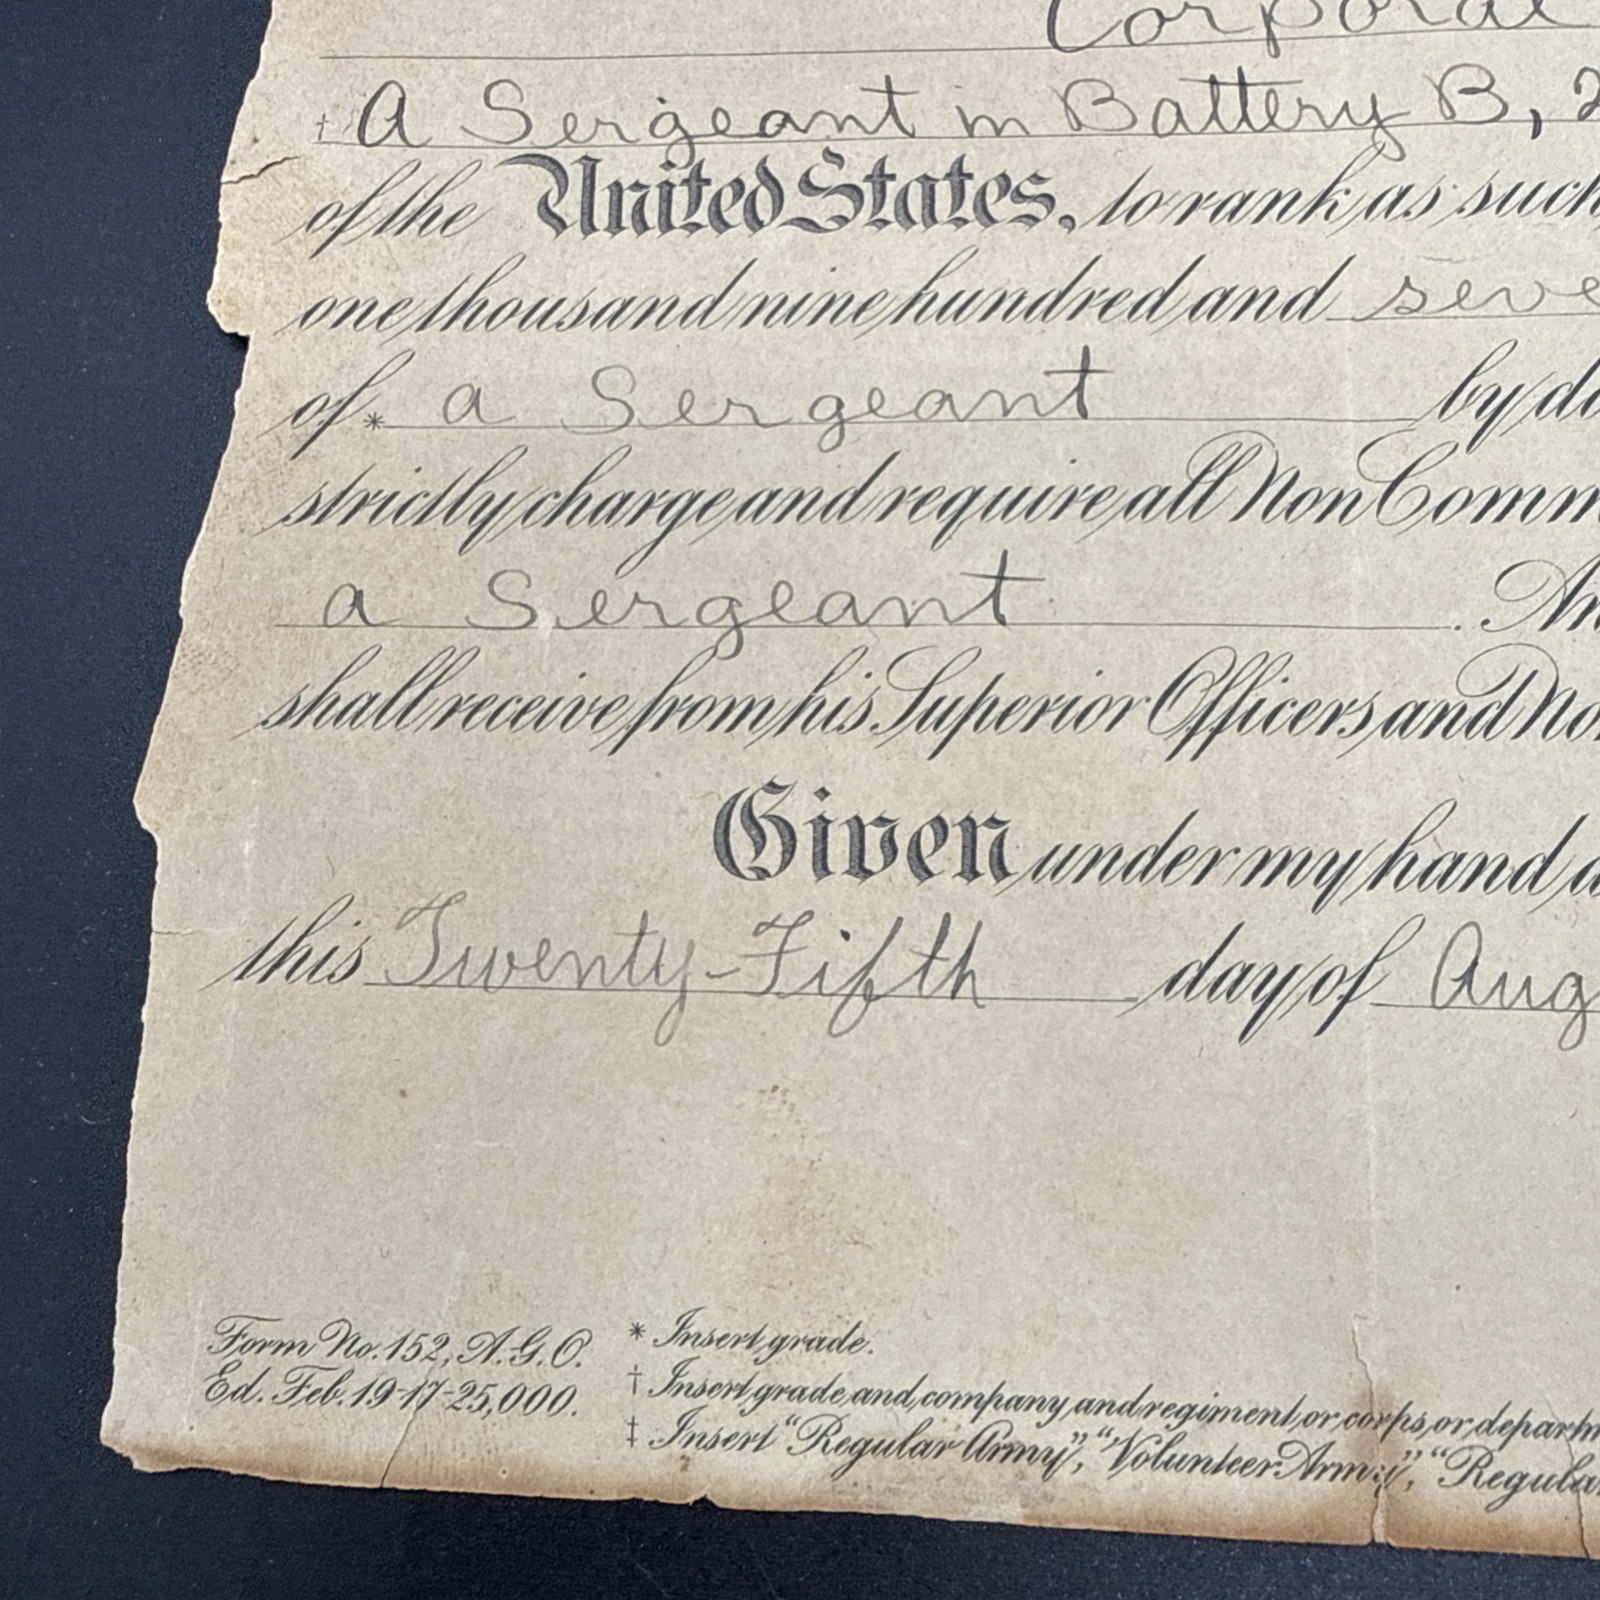 Corporal
† A Sergeant in Battery B, 2
of the United States, to rank as such
one thousand nine hundred and seve
of * a Sergeant by do
strictly charge and require all Non Comm
a Sergeant . An
shall receive from his Superior Officers and No
Given under my hand a
this Twenty-Fifth day of Aug
Form No. 152, A.G.O.
Ed. Feb. 19-17-25,000.
* Insert grade.
† Insert grade and company and regiment or corps or departm
‡ Insert "Regular Army", "Volunteer Army", "Regular